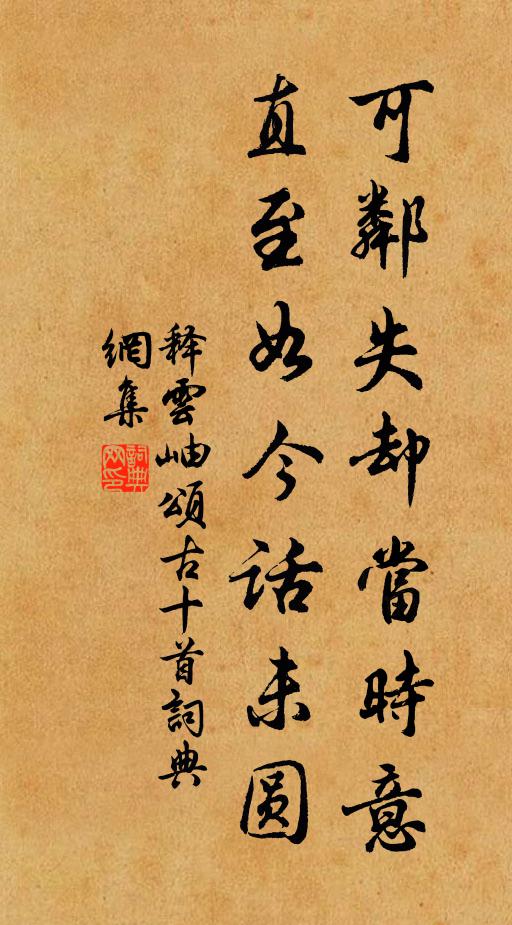 可鄰失却當時意
直至如今話未圆
释雲岫頌古十首詞典
網集
詞典網印